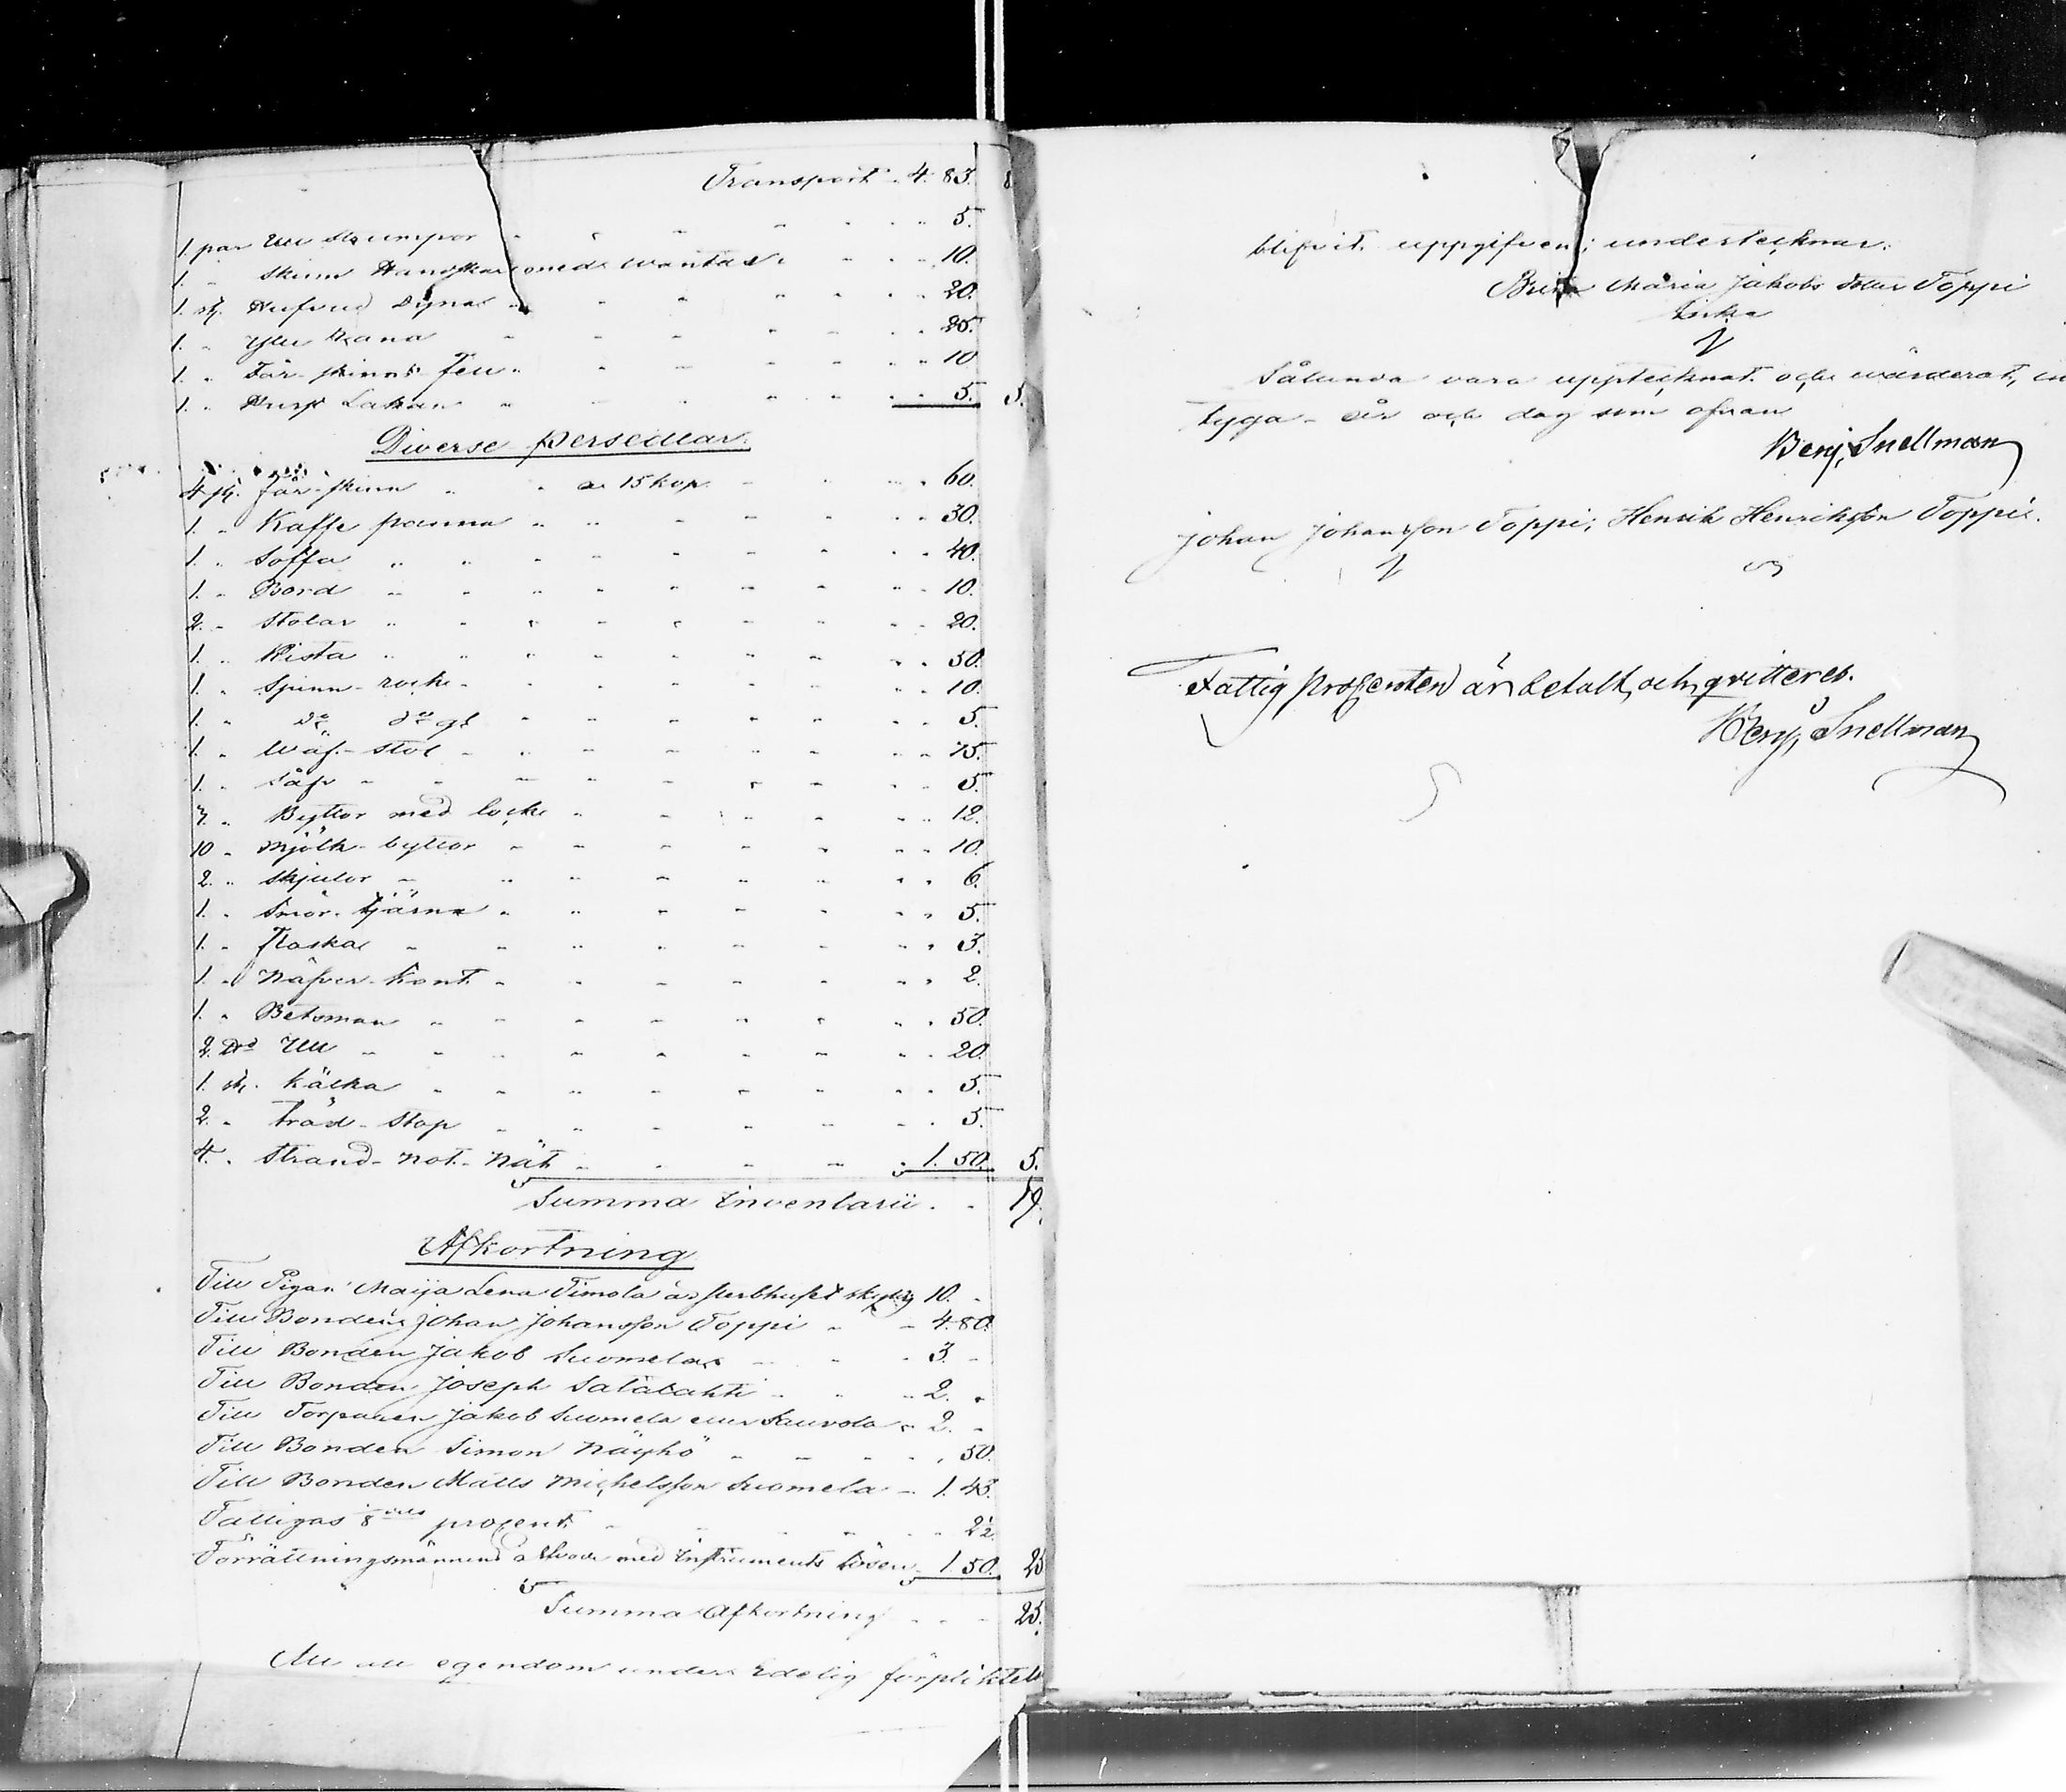 Transport 4. 83. 8
1. par Ull strumpor 5.
1. " skinn Handskar med wantar 10.
1. st. Hufvud Dyna 20.
1. " Ylle 25.
1. " Får-skinns-fell 10
1. " Lakan 5. 5.
Diverse Persedlar.
4 st. får-skinn a 15 kop. 60.
1. " Kaffe panna 30.
1. " Soffa 40.
1. " Bord 10.
2. " Stolar 20.
1. " Kista 50.
1. " Spinn-rock 10.
1. " do do gl 5.
1. " Wäf-stol 15.
1. " Såp 5.
7. " Byttor med lock 12.
10 " Mjölk-byttor 10.
2. " skjulor 6.
1. " Smör-tjärna 5.
1. " flaska 3.
1. " Näfver-kont 2.
1. " Betsman 50.
2. Ull 20.
1. st. kälka 5.
2. " träd-stop 5.
4. " Strand-not-nät 1. 50. 5.
Summa Inventarii 19.
Afkortning
Till Pigan Maija Lena Timola är sterbhuset skyldig 10. -
Till Bonden Johan Johansson Toppi 4. 80.
Till Bonden Jakob Suomela 3. -
Till Bonden Joseph Satalahti 2. -
Till Torparen Jakob Suomela eller Sauvola 2. -
Till Bonden Simon Näyhö 50.
Till Bonden Matts Michelsson Suomela 1. 43.
Fattigas 1/8 dels procent 2 1/2
Förrättningsmännens arfvode med Instruments lösen 1. 50. 25
Summa Afkortning 25.
All egendom under Edelig förpliktel
blifvit uppgifven; undertecknar.
Brita Maria Jakobs dotter Toppi
Enka
Sålunda vara upptecknat och wärderat,
tyga - år och dag som ofvan
Benj. Snellman
Johan Johansson Toppi; Henrik Henriksson Toppi.
Fattig procenten är betalt, och qvitteras.
Benj. Snellman